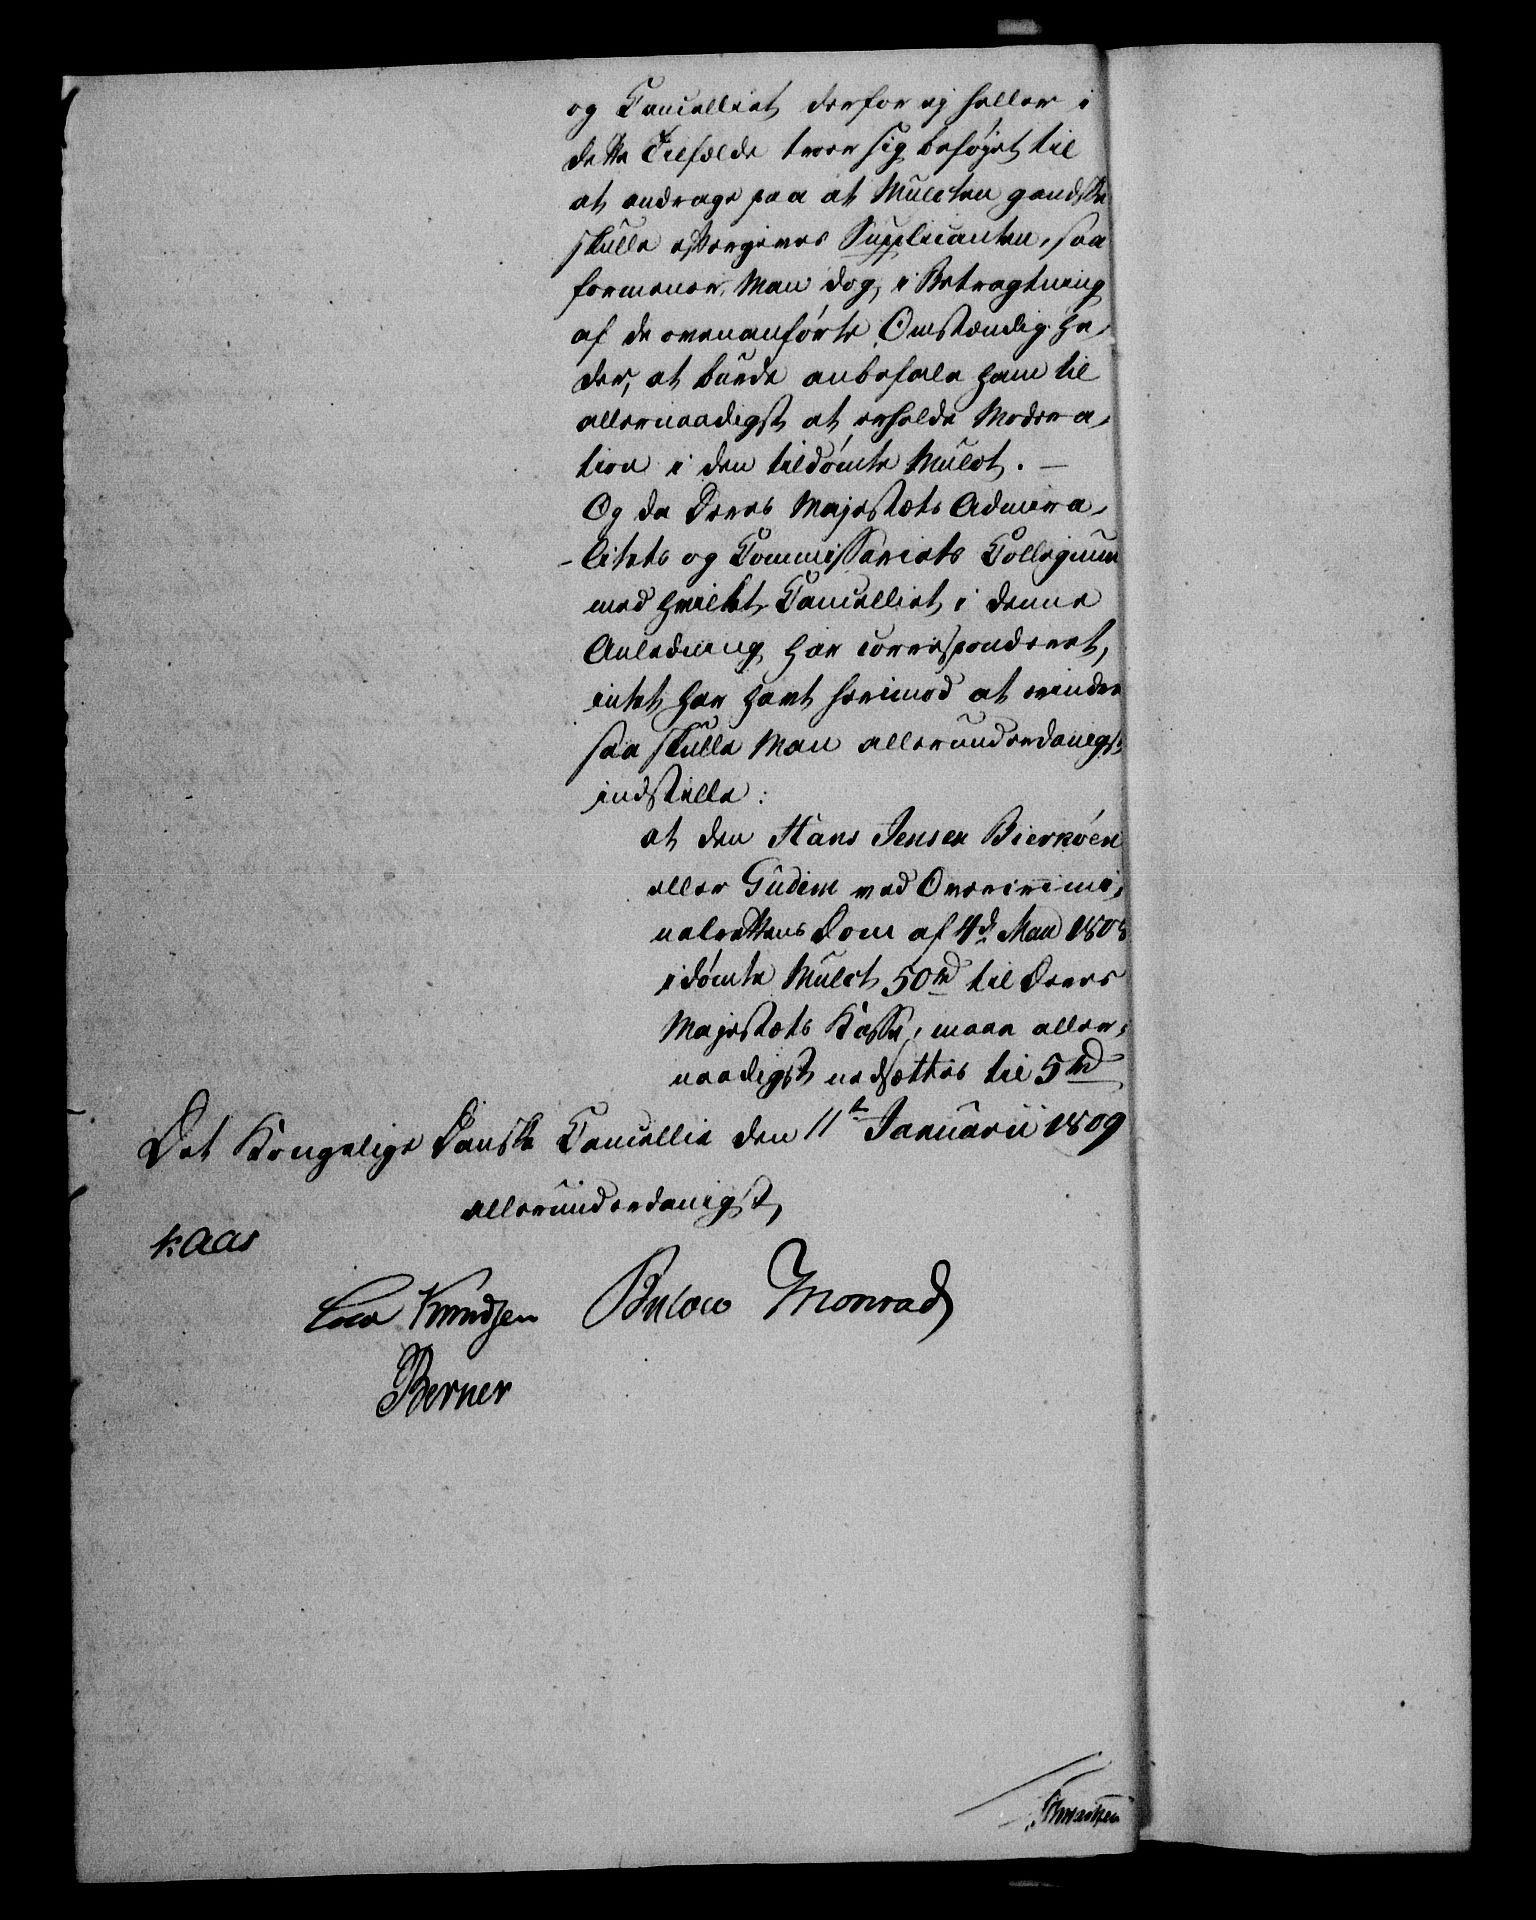 og Cancelliet derfor ej heller i
dette Tilfælde troer sig beføjet til
at andrage paa at Mulcten gandske
skulle eftergives Supplicanten, saa
formener Man dog, i Betragtning
af de ovenanførte Omstændighe-
der, at burde anbefale ham til
allernaadigst at erholde Modera-
tion i den tildømte Mulct. —
Og da Deres Majestæts Admira-
-litets og Commissariats Collegium
med hvilket Cancelliet i denne
Anledning har correspønderet,
intet har havt herimod at erindre
saa skulle Man allerunderdanigst
indstille:
at den Hans Jensen Bierkøen
eller Gudim ved Overcrimi-
nalrettens Dom af 4d. Maii 1808
idømte Mulct 50 rd til Deres
Majestæts Kasse, maae aller-
naadigst nedsættes til 5 rd
Det Kongelige Danske Cancellie den 11te Januarii 1809
allerunderdanigst,
Kaas
Knudsen Bülow Monrad
Berner